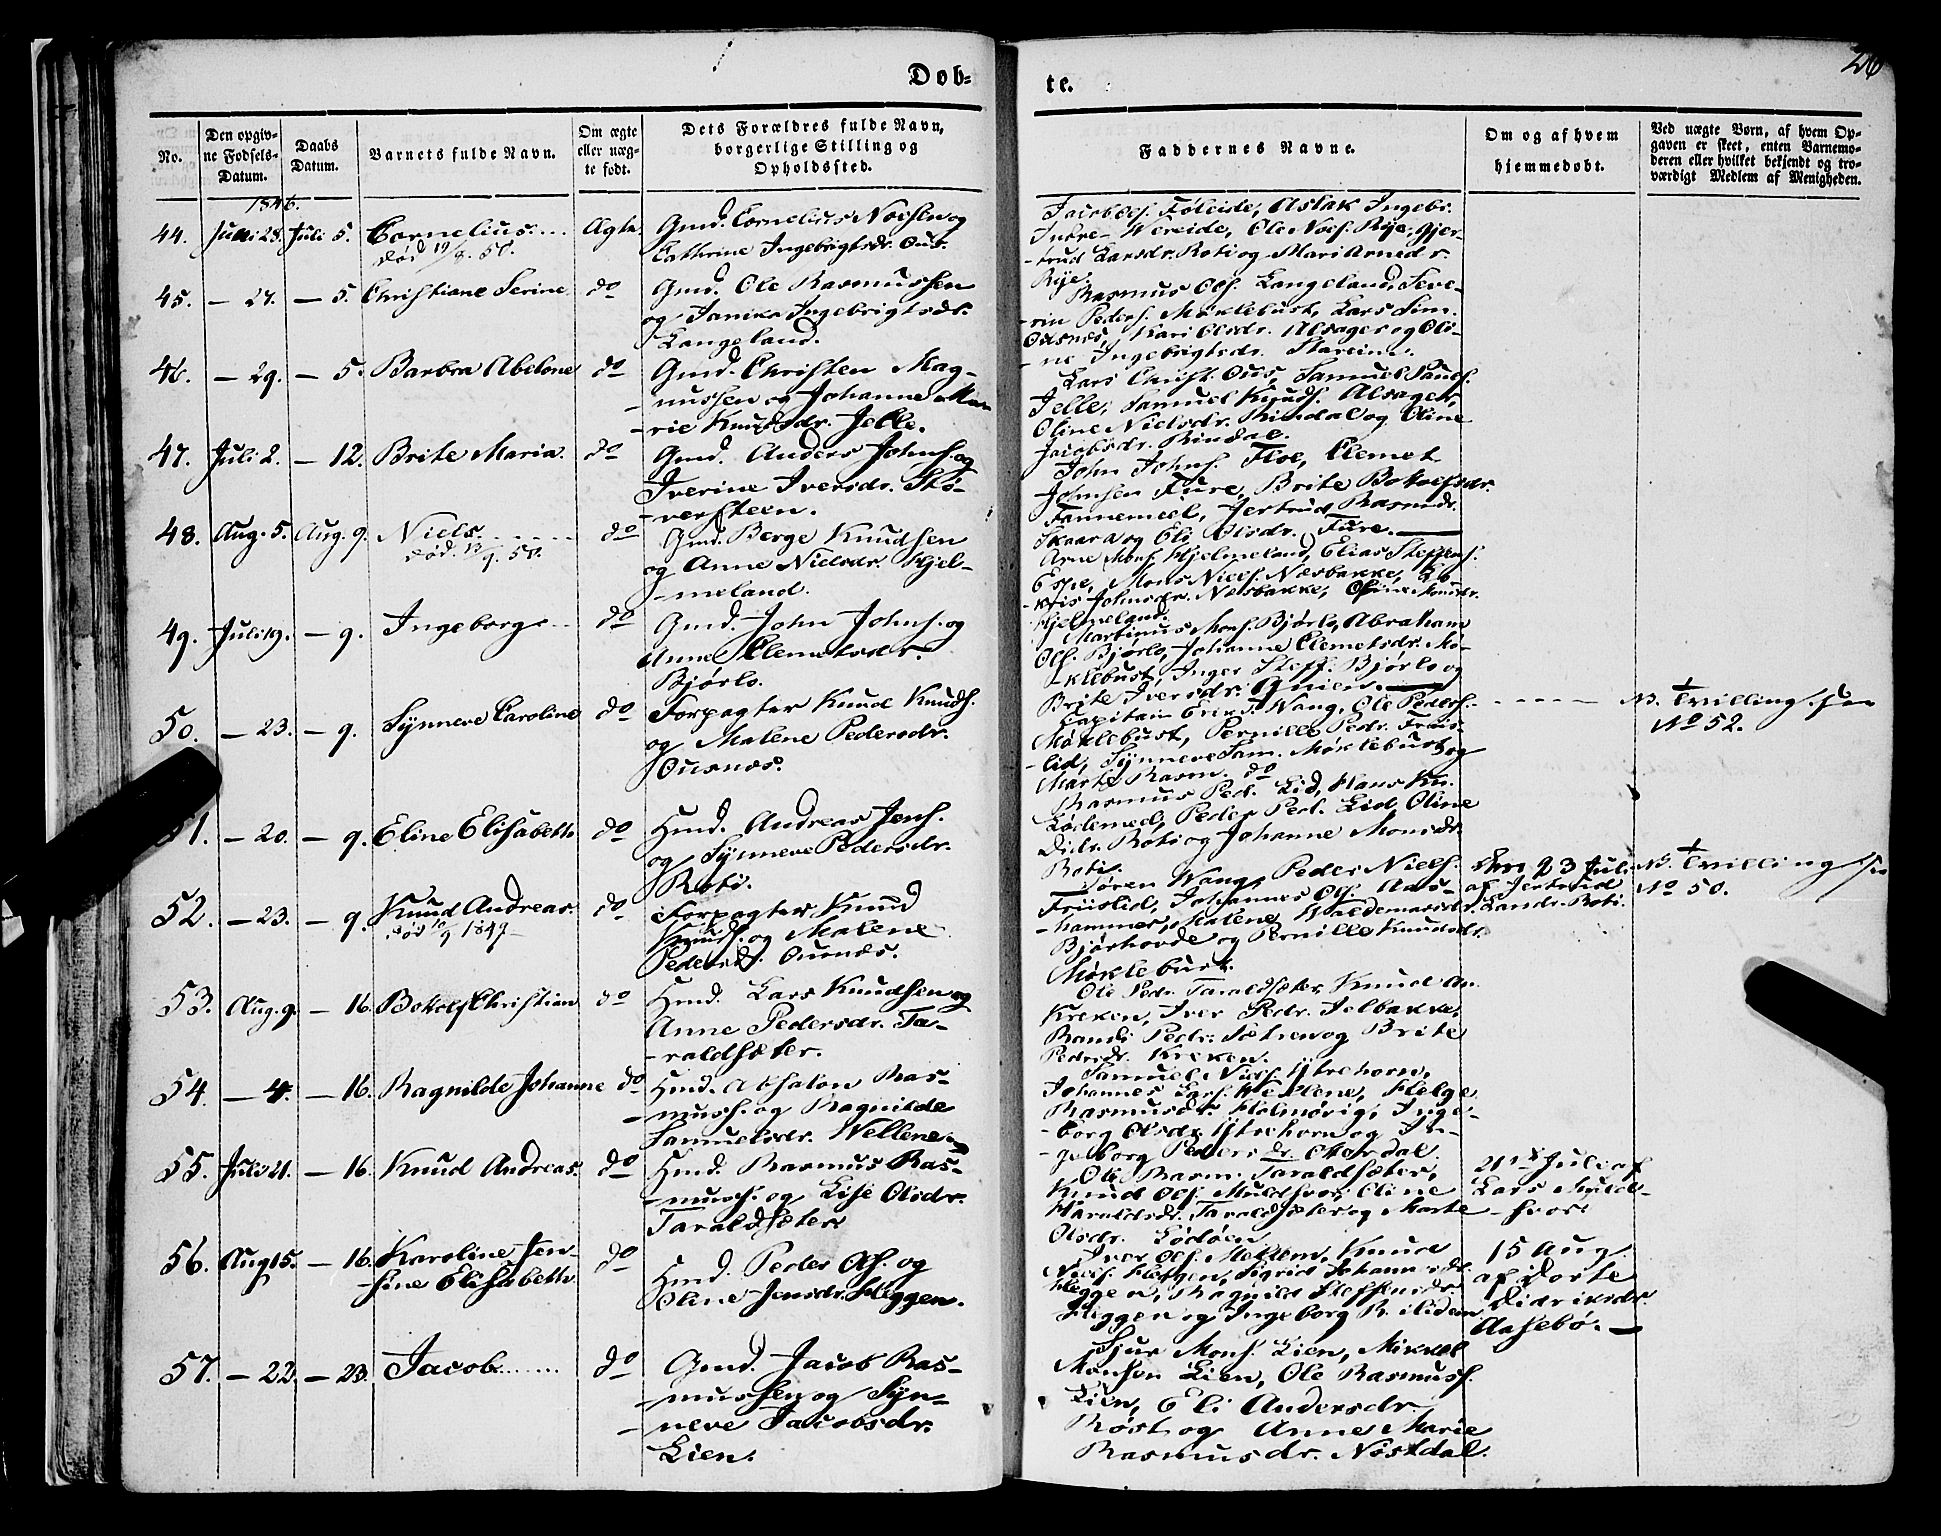 26
Dob-
te.
No.
Den opgiv-
ne Fødsels-
Datum.
Daabs
Datum.
Barnets fulde Navn.
Om ægte
eller uæg-
te født.
Dets Forældres fulde Navn,
borgerlige Stilling og
Opholdssted.
Faddernes Navne.
Om og af hvem
hjemmedøbt.
Ved uægte Børn, af hvem Op-
gaven er skeet, enten Barnemo-
deren eller hvilket bekjendt og tro-
værdigt Medlem af Menigheden.
1846.
44. Juni 28. Juli 5. Cornelius Ægte
død 19/8. 50.
Gmd. Cornelius Noesen og
Cathrine Ingebrigtsdr. Ous.
Jacob Ols. Føleide, Aslak Ingebr.
Indre-Wereide, Ole Noes. Rye, Gjer-
-trud Larsdr. Roti og Mari Arnedr.
Rye.
45. — 27. — 5. Christiane Serine do
Gmd. Ole Rasmussen
og Janika Ingebrigtsdr.
Langeland.
Rasmus Ols. Langeland, Seve-
-rin Peders. Møklebust, Lars Sim.
Ousnes, Kari Olsdr. Alsager og Oli-
-ne Ingebrigtsdr. Stareim.
46. — 29. — 5. Barbra Abelone do
Gmd. Christen Mag-
-nussen og Johanne Ma-
-rie Knudsdr. Jelle.
Lars Christ. Ous, Samuel
Jelle, Samuel Knuds. Alsager,
Oline Nielsdr. Rindal og Oline
Jacobsdr. Rindal.
47. Juli 2. — 12. Brite Maria. do
Gmd. Anders Johns. og
Iverine Iversdr. Stø-
-versteen.
John Johns. Floe, Clemet
Johnsen Fure, Brite Botolfsdr.
Tannemeel, Jertrud Rasmdr.
Skaara og Eli Olsdr. Fure.
48. Aug. 5. Aug. 9. Niels. do
død 12/9. 50.
Gmd. Berge Knudsen
og Anne Nielsdr. Hjel-
-meland.
Arne Mons. Hjelmeland, Elias Steffens.
Espe, Mons Niels. Nesbakke,
Johnsdr. Nesbakke, Oline
Hjelmeland.
49. Juli 19. — 9. Ingeborg do
Gmd. John Johns. og
Anne Clemetsdr.
Bjørlo.
Martinus Mons. Bjørlo, Abraham
Ols. Bjørlo, Johanne Clemetsdr. Mø-
-klebust, Inger Steff. Bjørlo og
Brite Iversdr.
50. — 23. — 9. Synneve Caroline do
Forpagter Knud Knuds.
og Malene Pedersdr.
Ousnes.
Capitain Erik S. Wang, Ole Peders.
Møklebust, Pernille Pedr. Friis-
-lid, Synneve Sam. Møklebust og
Marte Rasm. do
NB. Tvilling
No 52.
51. — 20. — 9. Eline Elisabeth do
Hmd. Andreas Jens.
og Synneve Pedersdr.
Roti.
Rasmus Ped. Lid, Hans Kn.
Lødemel, Peder Ped. Lid, Oline
Didr. Roti og Johanne Monsdr.
Roti.
52. — 23. — 9. Knud Andreas. do
død 10/9 1847
Forpagter Knud
Knuds. og Malene
Pedersdr. Ousnes.
Søren Wang, Peder Niels.
Friislid, Johannes Ols. Aas-
-hammer, Malene Waldemarsdr.
Bjørhovde og Pernille Knudsdr.
Møklebust.
den 23 Juli
af Jertrud
Landr. Roti.
NB. Tvilling
No 50.
53. Aug. 9. — 16. Botolf Christian do
Hmd. Lars Knudsen og
Anne Pedersdr. Ta-
-raldsæter.
Ole Pedr. Taraldsæter, Knud An.
Kreken, Iver Pedr. Jelbakke,
Randi Pedr. Sætren og Brite
Pedrsdr. Kreken.
54. — 4. — 16. Ragnilde Johanne do
Hmd. Absalon Ras-
-muss. og Ragnilde
Samuelsdr. Wellene.
Samuel Niels. Ytrehorn,
Johannes Lars. Wellene, Helge
Rasmusdr. Holmøvig, Inge-
-borg Olsdr. Ytrehorn og In-
-geborg Pedersdr. Otterdal.
55. Juli 21. — 16. Knud Andreas. do
Hmd. Rasmus Ras-
-muss. og Lise Olsdr.
Taraldsæter
Ole Rasm. Taraldsæter,
Knud Ols. Muldsvor, Oline
Haraldsdr. Taraldsæter og Marte
Olsdr. Lødøen
21de Juli af
Lars Muld-
-svor
56. Aug 15. — 16. Karoline Jen-
-sine Elisabeth do
Hmd. Peder Ols. og
Oline Jensdr. Heggen.
Iver Ols. Meklom, Knud
Niels. Heggen, Sigrid Johannesdr.
Heggen, Ragnild Steffensdr.
Heggen og Ingeborg R. Lidem
15 Aug.
af Dorte
Didriksdr.
Aasebø.
57. — 22. — 23. Jacob do
Gmd. Jacob Ras-
-mussen og Syn-
-neve Jacobsdr.
Lien.
Sjur Mons. Lien, Mikkel
Monsen Lien, Ole Rasmuss.
Lien, Eli Andersdr.
Røst og Anne Marie
Rasmusdr. Nøstdal.